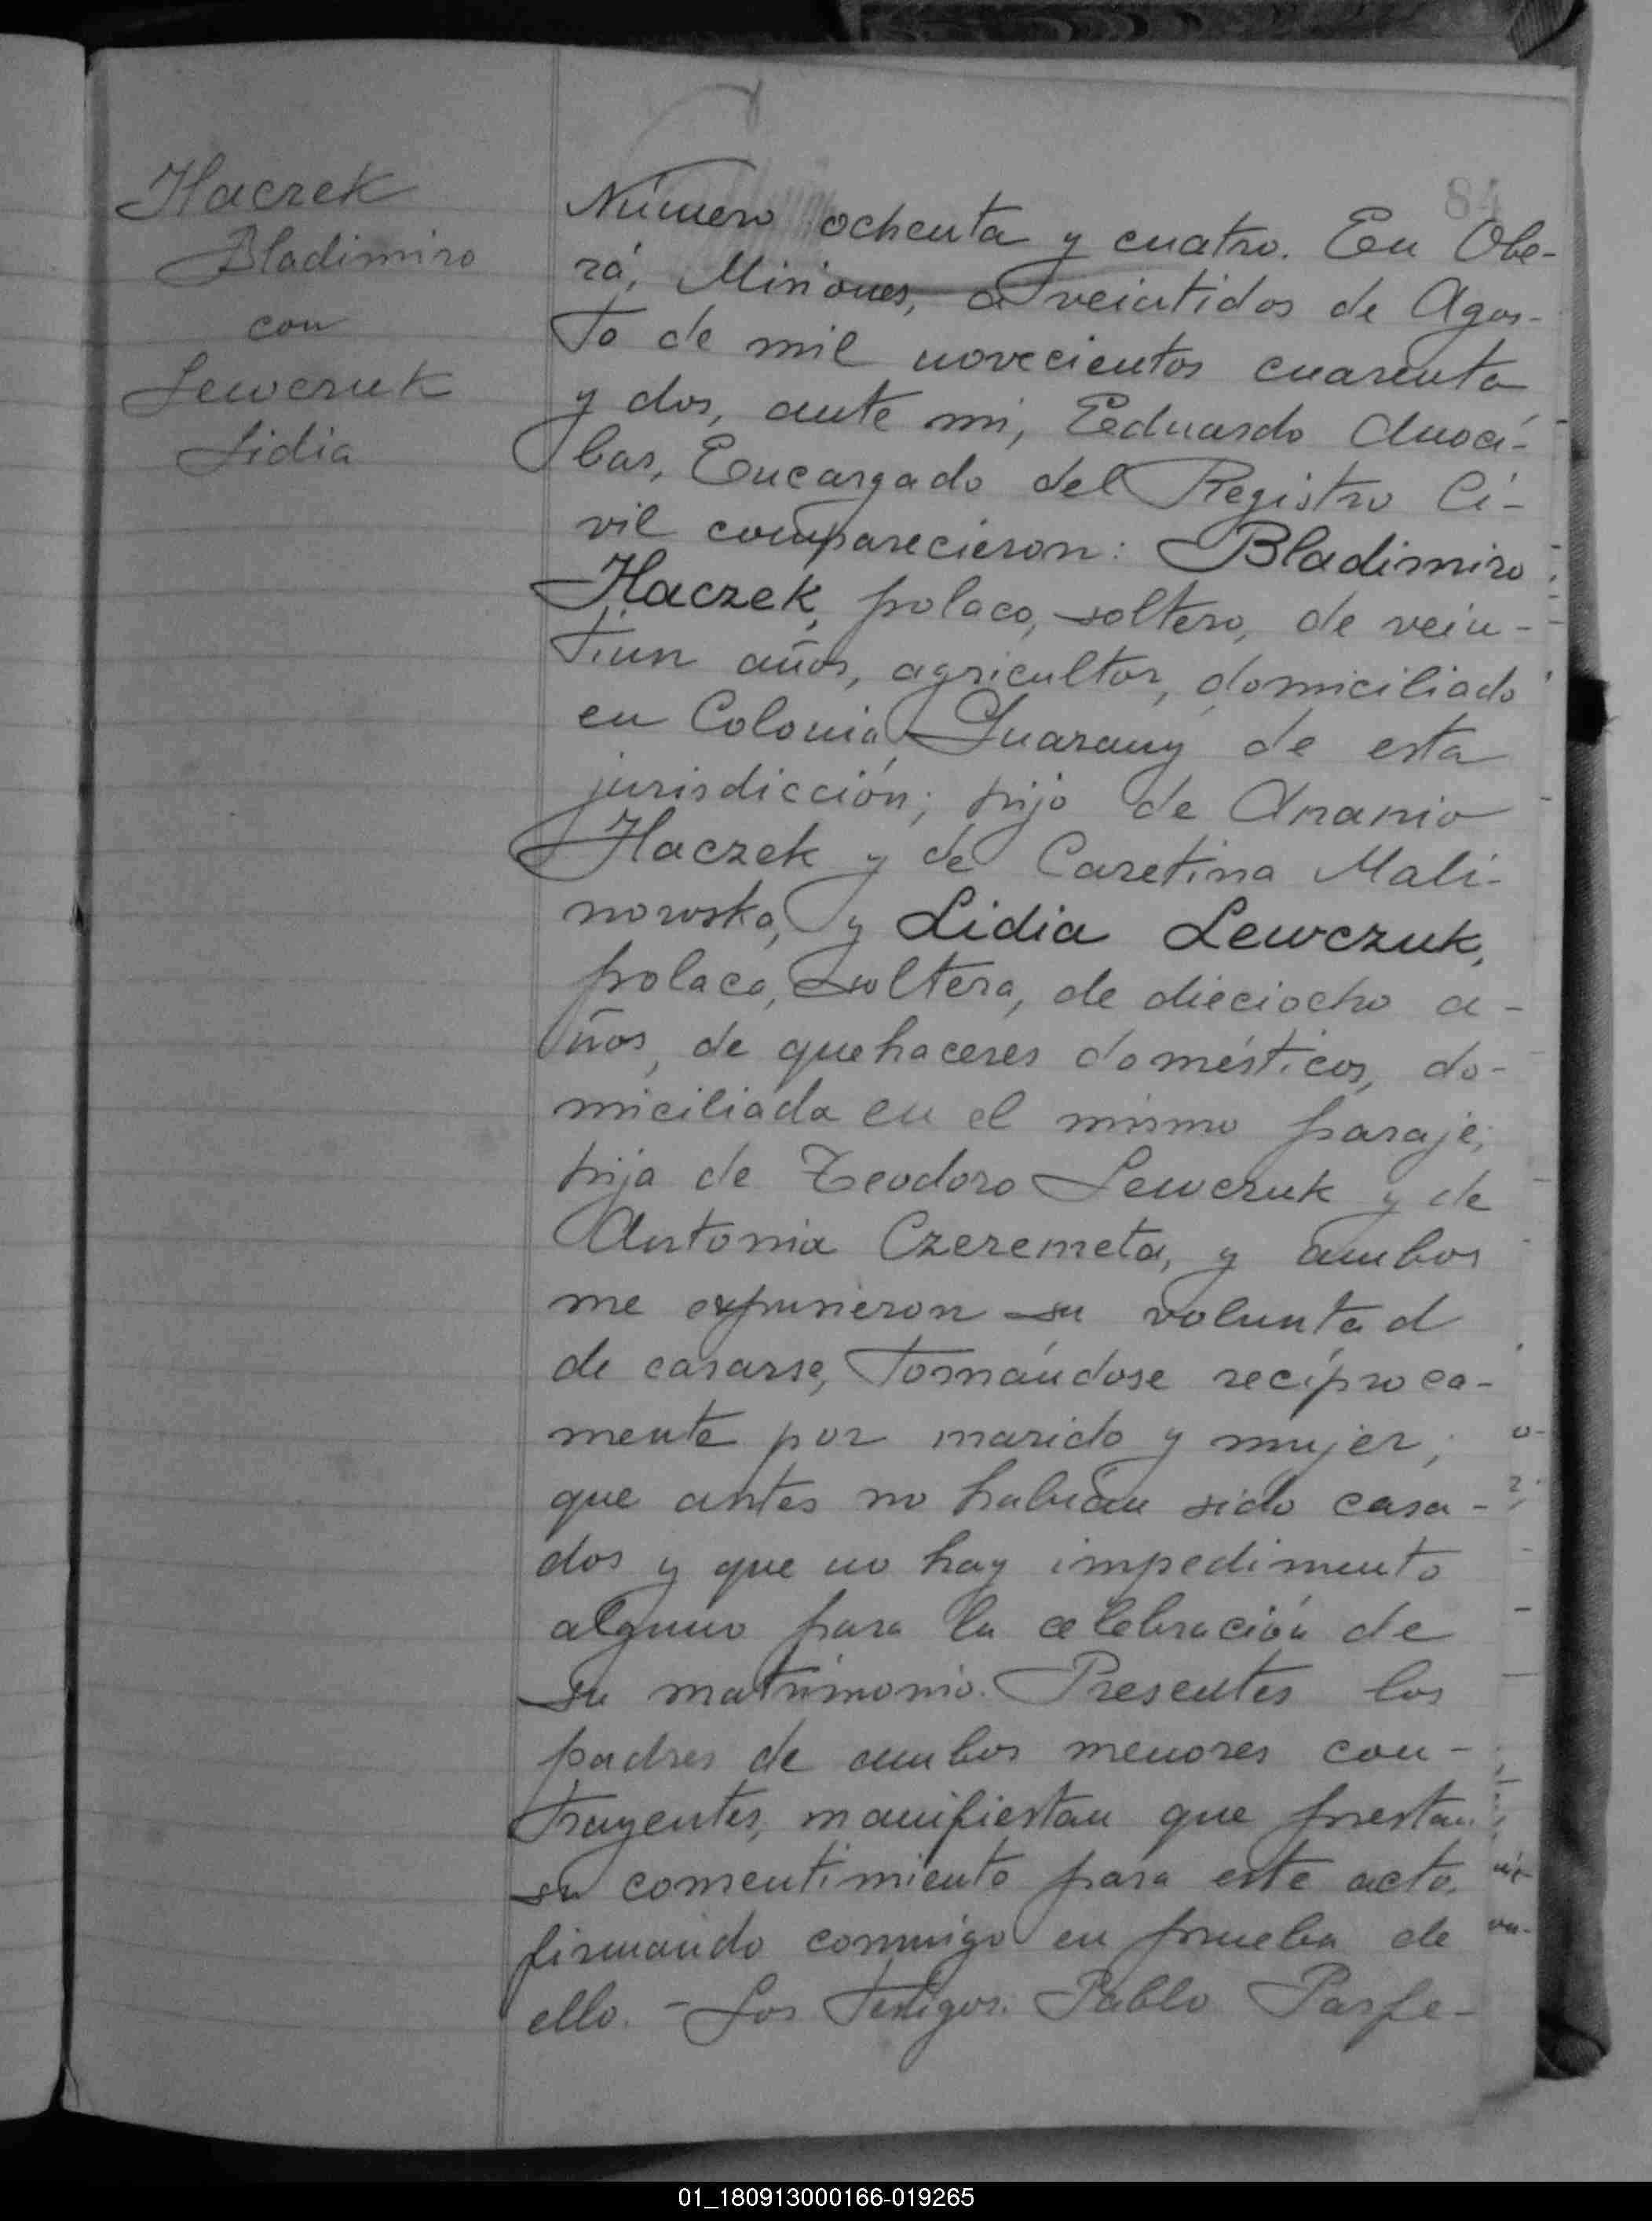 Haczek
Bladimiro
con
Lewczuk
Lidia
84
Número ochenta y cuatro. En Obe-
rá, Misiones, a veintidos de Agos-
to de mil novecientos cuarenta
y dos, ante mi, Eduardo Anocí-
bar, Encargado del Registro Ci-
vil comparecieron: Bladimiro
Haczek, polaco, soltero, de vein-
tiun años, agricultor, domiciliado
en Colonia Guarany de esta
jurisdicción; hijo de Ananio
Haczek y de Caretina Mali-
nowska, y Lidia Lewczuk,
polaca, soltera, de dieciocho a-
ños, de quehaceres domésticos, do-
miciliada en el mismo paraje;
hija de Teodoro Lewczuk y de
Antonia Czeremeta, y ambos
me expusieron su voluntad
de casarse, tomándose recíproca-
mente por marido y mujer;
que antes no habían sido casa-
dos y que no hay impedimento
alguno para la celebración de
su matrimonio. Presentes los
padres de ambos menores con-
trayentes, manifiestan que prestan
su consentimiento para este acto,
firmando conmigo en prueba de
ello. - Los Testigos. Pablo Parfe-
01_180913000166-019265